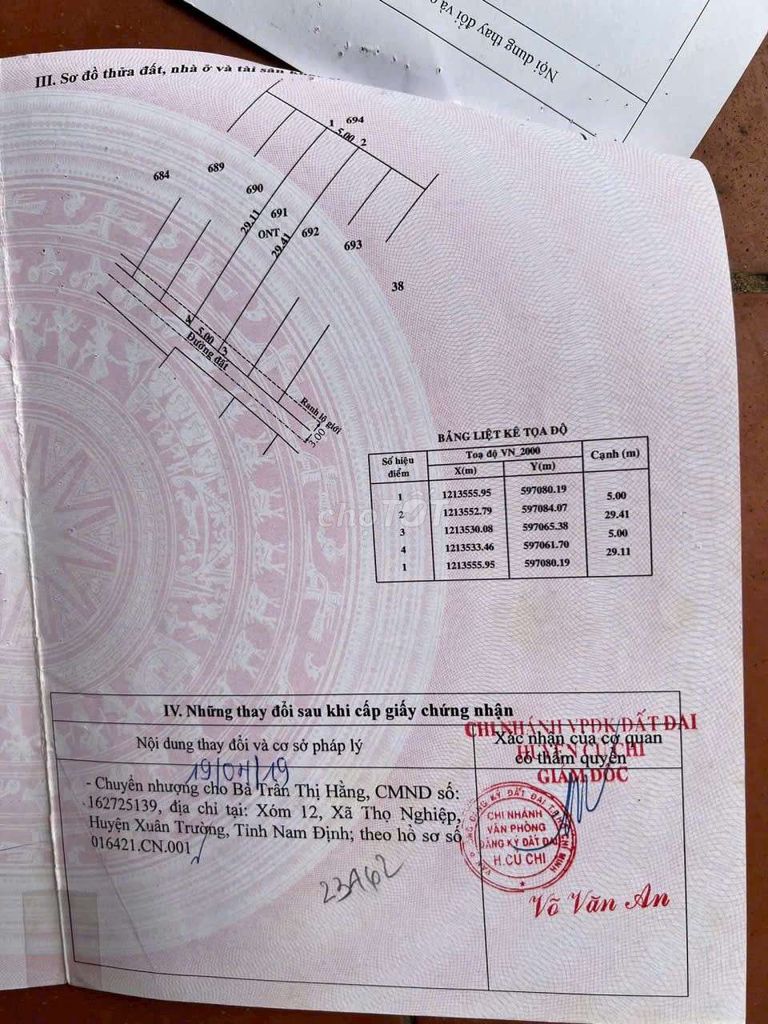 Nội dung thay đổi và c
III. Sơ đồ thửa đất, nhà ở và tài sản
1 694
5.00 2
684
689
690
691
ONT
692
693
38
29.11
29.41
5.00
3
Đường đất
Ranh lộ giới
3.00
BẢNG LIỆT KÊ TỌA ĐỘ
Số hiệu điểm Toạ độ VN_2000 Cạnh (m)
X(m) Y(m)
1 1213555.95 597080.19
5.00
2 1213552.79 597084.07
29.41
3 1213530.08 597065.38
5.00
4 1213533.46 597061.70
29.11
1 1213555.95 597080.19
choTOT
IV. Những thay đổi sau khi cấp giấy chứng nhận
Nội dung thay đổi và cơ sở pháp lý
Xác nhận của cơ quan
có thẩm quyền
19/07/19
- Chuyển nhượng cho Bà Trần Thị Hằng, CMND số:
162725139, địa chỉ tại: Xóm 12, Xã Thọ Nghiệp,
Huyện Xuân Trường, Tỉnh Nam Định; theo hồ sơ số
016421.CN.001
23A62
CHI NHÁNH VPĐK ĐẤT ĐAI
HUYỆN CỦ CHI
GIÁM ĐỐC
CHI NHÁNH
VĂN PHÒNG
ĐĂNG KÝ ĐẤT ĐAI
H.CỦ CHI
Võ Văn An